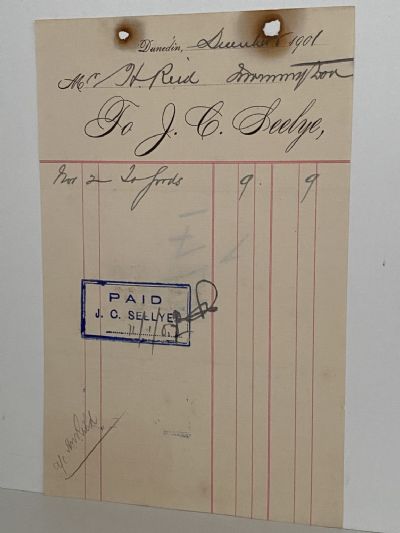 Dunedin, December 1901
Mr H Reid Mornington
To J. C. Seelye,
Nov 2 To Goods 9. 9
PAID
J. C. SELLYE
11/1/02
a/c